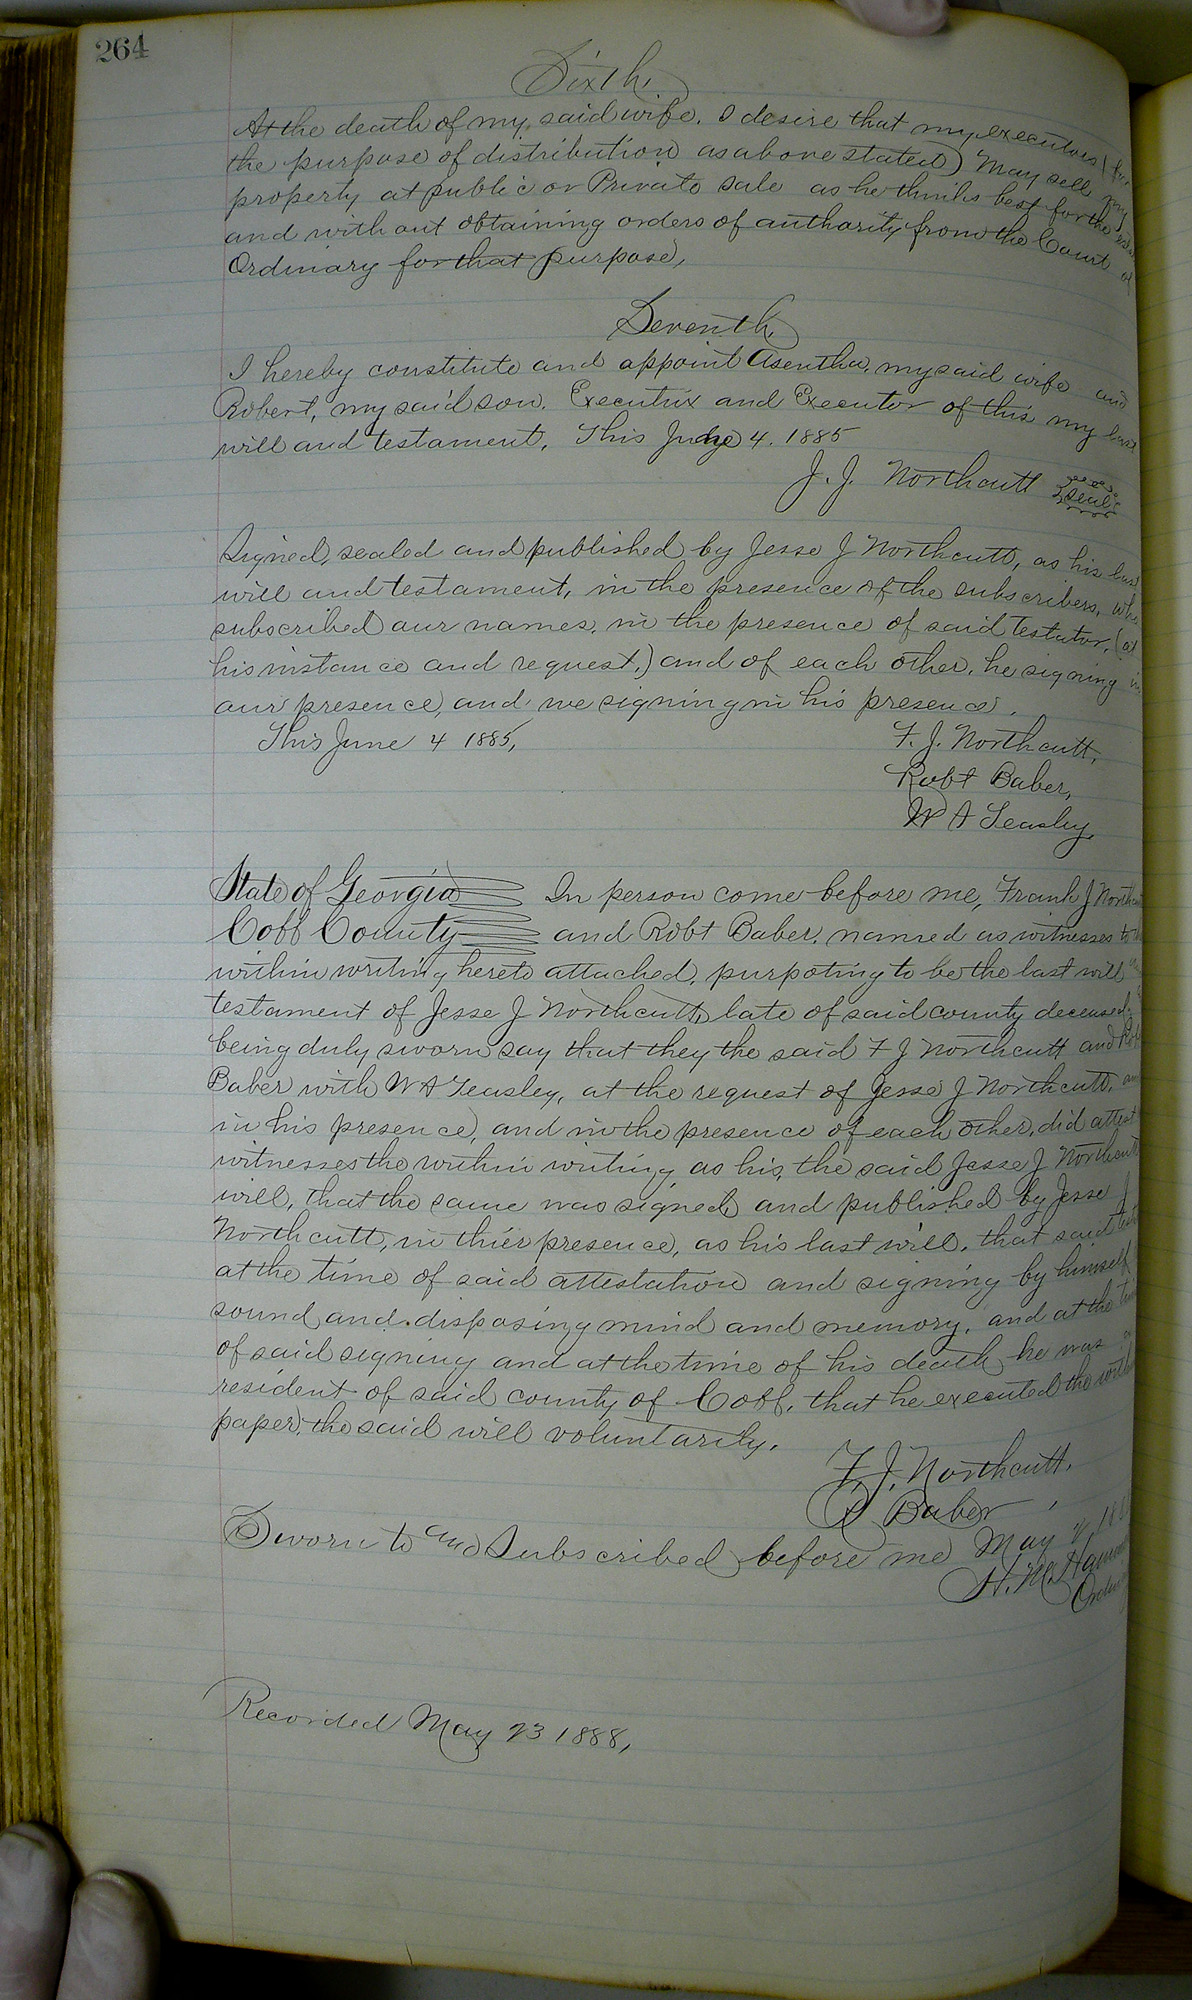 264
Sixth.
At the death of my said wife. I desire that my executors (for
the purpose of distribution as above stated) May sell my
property at public or Private sale as he thinks best for the
and without obtaining orders of authority from the Court of
Ordinary for that purpose,
Seventh
I hereby constitute and appoint Asentha, my said wife and
Robert, my said son. Executrix and Executor of this my last
will and testament. This June 4. 1885
J. J. Northcutt seal
Signed, sealed and published by Jesse J Northcutt, as his last
will and testament, in the presence of the subscribers, who
subscribed our names, in the presence of said Testator, (at
his instance and request,) and of each other, he signing in
our presence, and we signing in his presence.
This June 4 1885,
F. J. Northcutt,
Robt Baber,
W A Teasley,
State of Georgia In person come before me, Frank J
Cobb County and Robt Baber, named as witnesses to
within writing hereto attached, purpoting to be the last will
testament of Jesse J Northcutt, late of said county deceased,
being duly sworn say that they the said F J Northcutt and
Baber with W A Teasley, at the request of Jesse J Northcutt, and
in his presence, and in the presence of each other, did attest
witnesses the within writing as his, the said Jesse J Northcutt
will, that the same was signed and published by Jesse J
Northcutt, in thier presence, as his last will, that said
at the time of said attestation and signing by himself
sound and disposing mind and memory, and at the time
of said signing and at the time of his death he was a
resident of said county of Cobb, that he executed the within
paper, the said will voluntarily.
F. J. Northcutt.
R Baber
Sworn to and Subscribed before me May
H. M.
Recorded May 23 1888,